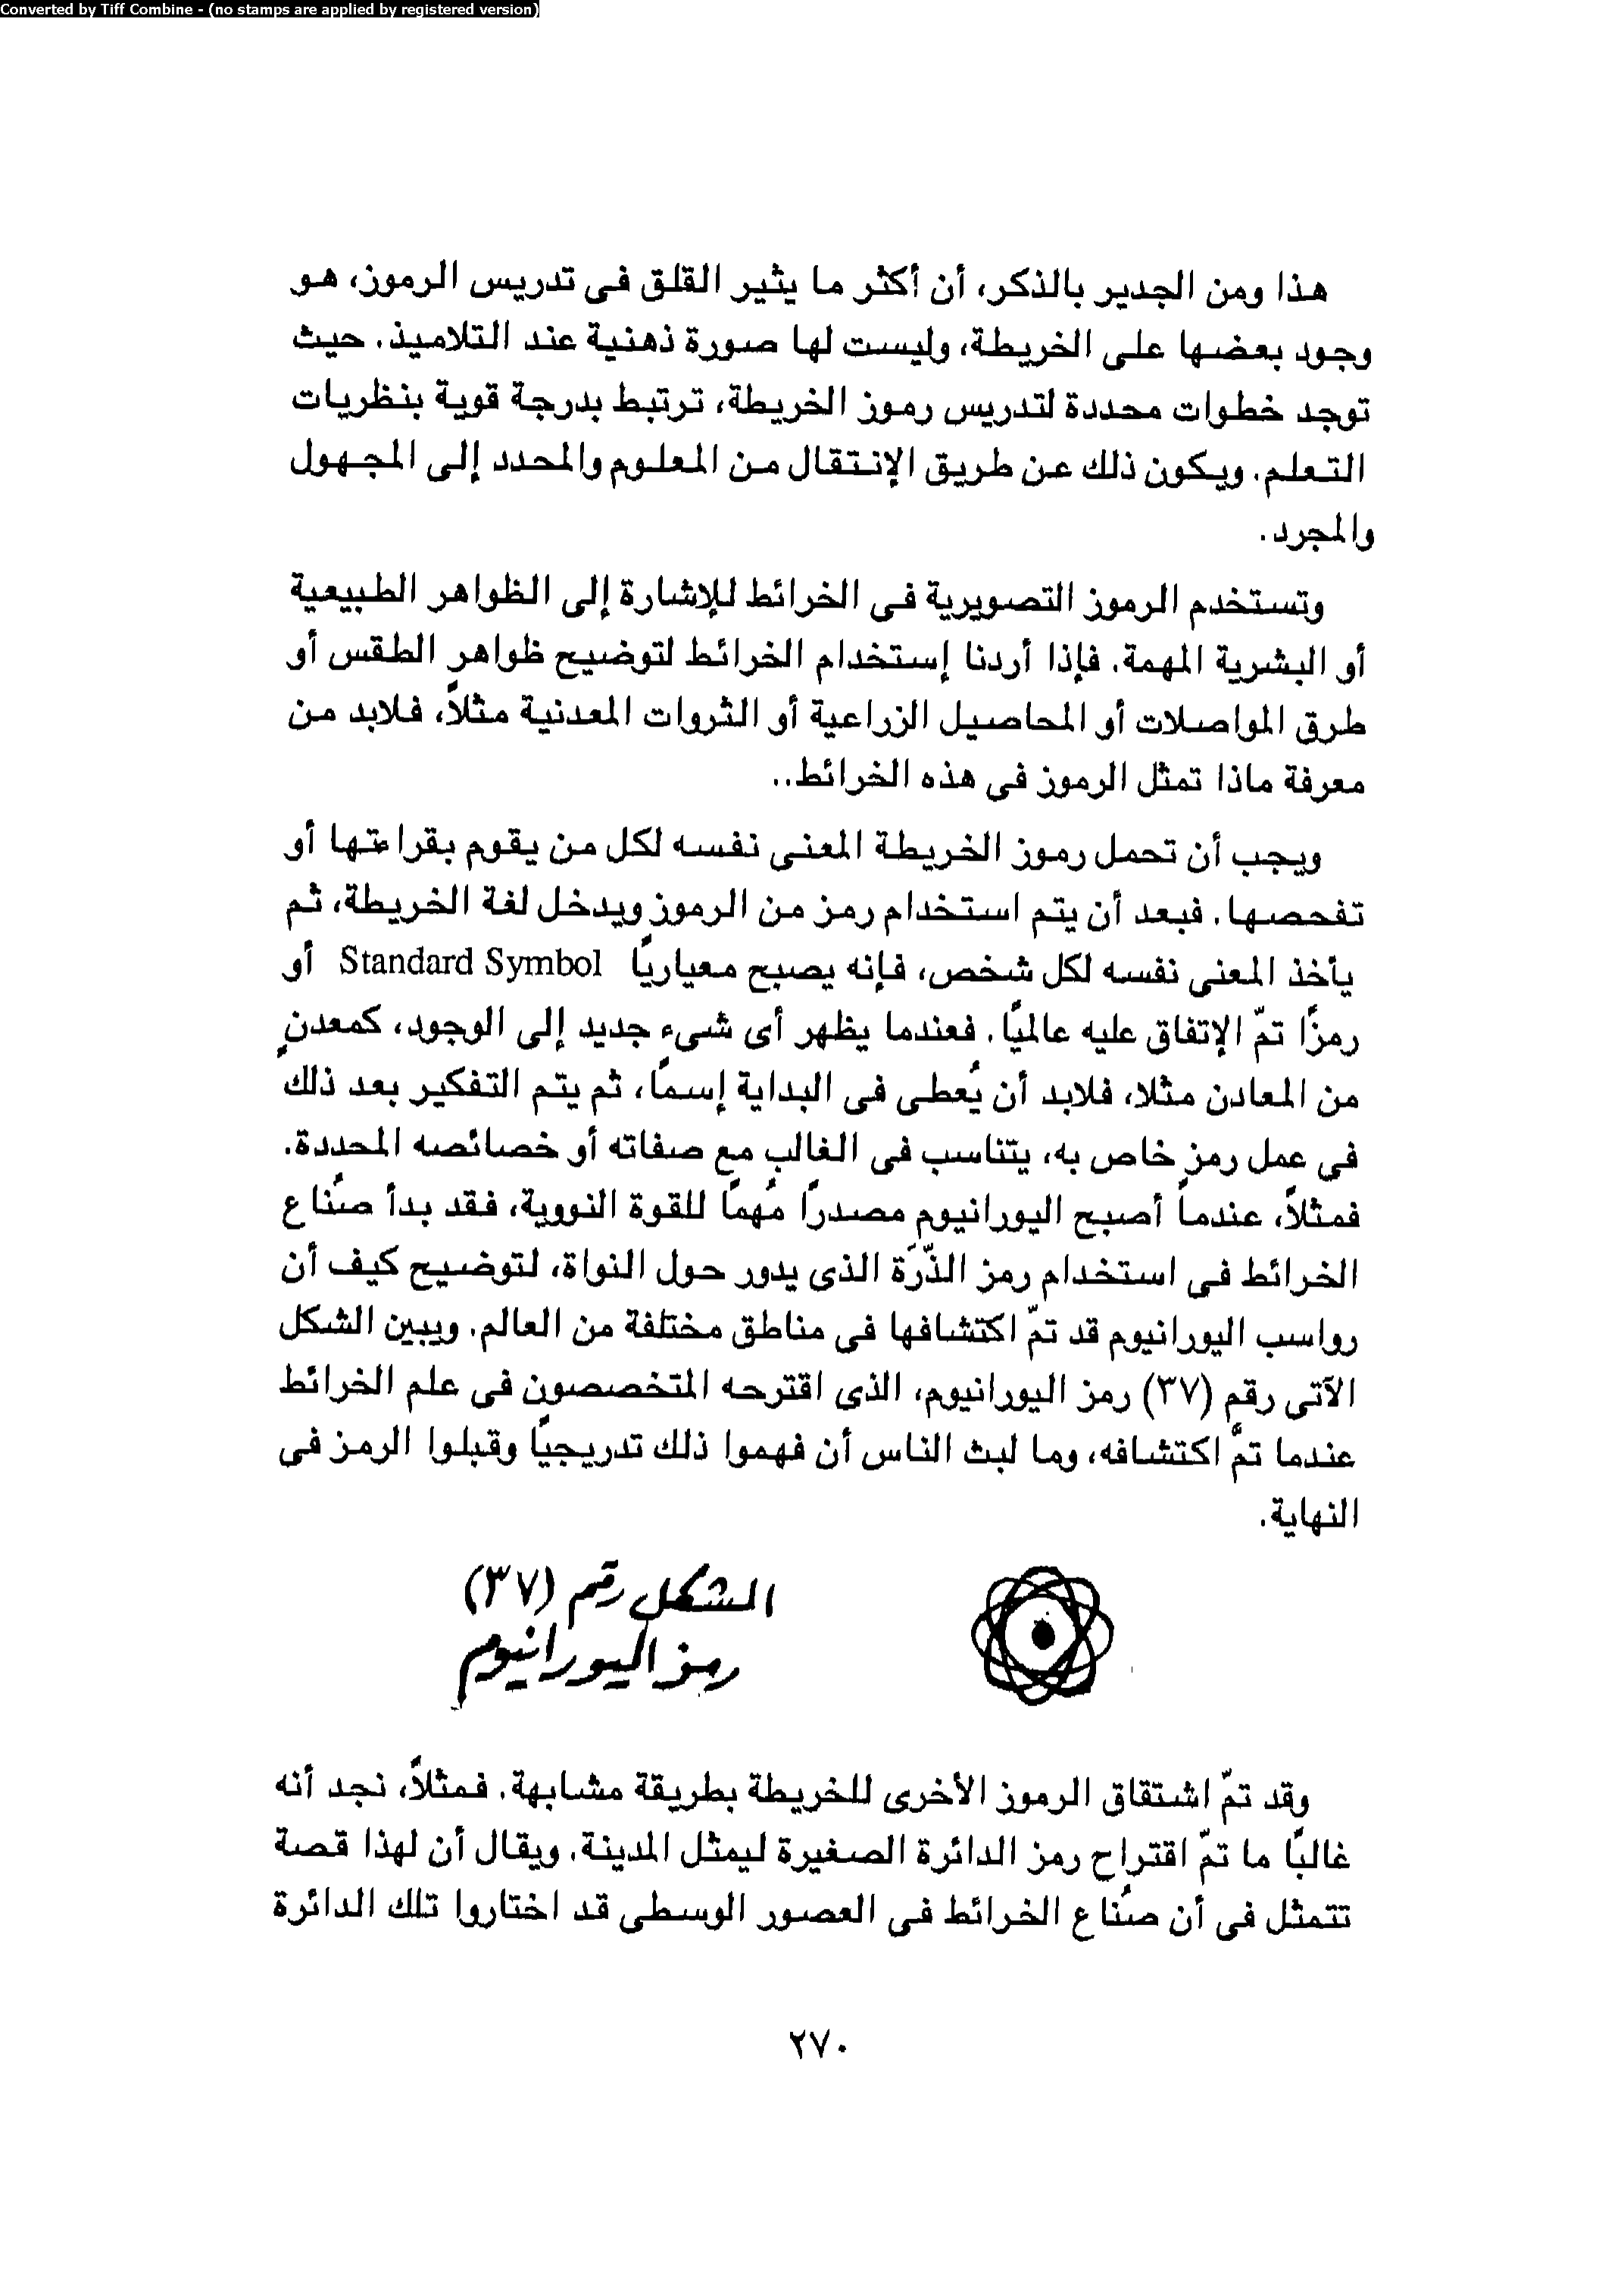 Converted by Tiff Combine - (no stamps are applied by registered version)
هذا ومن الجدير بالذكر، أن أكثر ما يثير القلق فى تدريس الرموز، هو
وجود بعضها على الخريطة، وليست لها صورة ذهنية عند التلاميذ. حيث
توجد خطوات محددة لتدريس رموز الخريطة، ترتبط بدرجة قوية بنظريات
التعلم. ويكون ذلك عن طريق الإنتقال من المعلوم والمحدد إلى المجهول
والمجرد.
وتستخدم الرموز التصويرية فى الخرائط للإشارة إلى الظواهر الطبيعية
أو البشرية المهمة. فإذا أردنا إستخدام الخرائط لتوضيح ظواهر الطقس أو
طرق المواصلات أو المحاصيل الزراعية أو الثروات المعدنية مثلاً، فلابد من
معرفة ماذا تمثل الرموز فى هذه الخرائط..
ويجب أن تحمل رموز الخريطة المعنى نفسه لكل من يقوم بقراءتها أو
تفحصها. فبعد أن يتم استخدام رمز من الرموز ويدخل لغة الخريطة، ثم
يأخذ المعنى نفسه لكل شخص، فإنه يصبح معياريًا Standard Symbol أو
رمزًا تمّ الإتفاق عليه عالميًا. فعندما يظهر أى شىء جديد إلى الوجود، كمعدنٍ
من المعادن مثلا، فلابد أن يُعطى فى البداية إسمًا، ثم يتم التفكير بعد ذلك
فى عمل رمز خاص به، يتناسب فى الغالب مع صفاته أو خصائصه المحددة.
فمثلاً، عندما أصبح اليورانيوم مصدرًا مُهمًا للقوة النووية، فقد بدأ صنُاع
الخرائط فى استخدام رمز الذّرَة الذى يدور حول النواة، لتوضيح كيف أن
رواسب اليورانيوم قد تمّ اكتشافها فى مناطق مختلفة من العالم. ويبين الشكل
الآتى رقم (٣٧) رمز اليورانيوم، الذى اقترحه المتخصصون فى علم الخرائط
عندما تمّ اكتشافه، وما لبث الناس أن فهموا ذلك تدريجيًا وقبلوا الرمز فى
النهاية.
الشكل رقم (٣٧)
رمز اليورانيوم
وقد تمّ اشتقاق الرموز الأخرى للخريطة بطريقة مشابهة. فمثلاً، نجد أنه
غالبًا ما تمّ اقتراح رمز الدائرة الصغيرة ليمثل المدينة. ويقال أن لهذا قصة
تتمثل فى أن صنُاع الخرائط فى العصور الوسطى قد اختاروا تلك الدائرة
٢٧٠